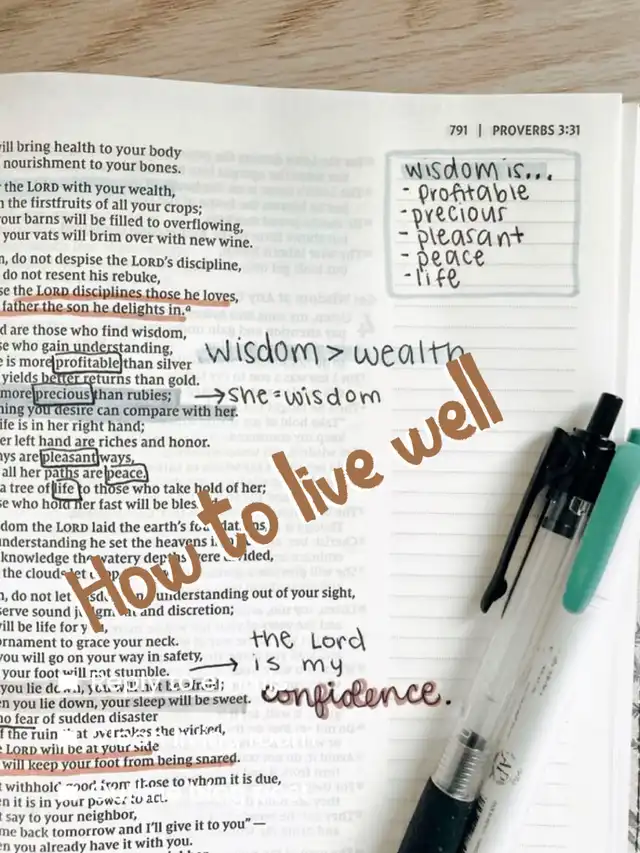 791 | PROVERBS 3:31
ill bring health to your body
nourishment to your bones.
the LORD with your wealth,
the firstfruits of all your crops;
our barns will be filled to overflowing,
your vats will brim over with new wine.
do not despise the LORD's discipline,
do not resent his rebuke,
se the LORD disciplines those he loves,
father the son he delights in.ᵃ
d are those who find wisdom,
se who gain understanding,
e is more profitable than silver
yields better returns than gold.
more precious than rubies;
ning you desire can compare with her.
ife is in her right hand;
er left hand are riches and honor.
ays are pleasant ways,
all her paths are peace.
a tree of life to those who take hold of her;
se who hold her fast will be
dom the LORD laid the earth's
understanding he set the heavens
knowledge the watery depths were
the clouds let
do not let understanding out of your sight,
serve sound and discretion;
will be life for
ornament to grace your neck.
you will go on your way in safety,
your foot will not stumble.
you lie
en you lie down, your sleep will be sweet.
no fear of sudden disaster
f the ruin that overtakes the wicked,
e LORD will be at your side
will keep your foot from being snared.
withhold good from those to whom it is due,
en it is in your power to act.
t say to your neighbor,
me back tomorrow and I'll give it to you"—
en you already have it with you.
wisdom is...
- profitable
- precious
- pleasant
- peace
- life
wisdom > wealth
→ she = wisdom
How to live well
→ the Lord
is my
confidence.